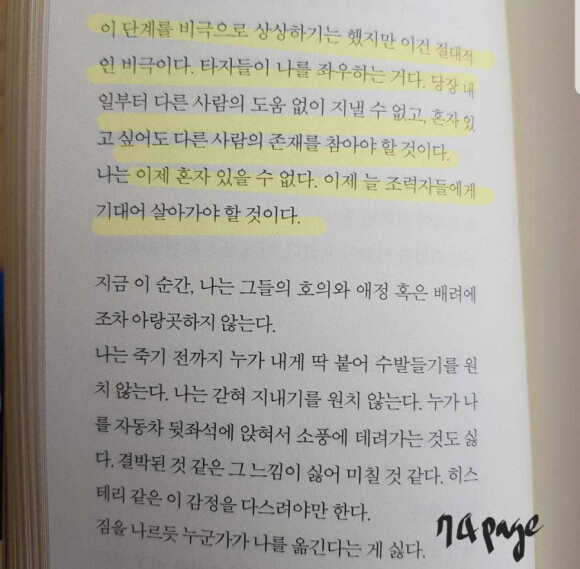 이 단계를 비극으로 상상하기는 했지만 이건 절대적
인 비극이다. 타자들이 나를 좌우하는 거다. 당장 내
일부터 다른 사람의 도움 없이 지낼 수 없고, 혼자 있
고 싶어도 다른 사람의 존재를 참아야 할 것이다.
나는 이제 혼자 있을 수 없다. 이제 늘 조력자들에게
기대어 살아가야 할 것이다.
지금 이 순간, 나는 그들의 호의와 애정 혹은 배려에
조차 아랑곳하지 않는다.
나는 죽기 전까지 누가 내게 딱 붙어 수발들기를 원
치 않는다. 나는 갇혀 지내기를 원치 않는다. 누가 나
를 자동차 뒷좌석에 앉혀서 소풍에 데려가는 것도 싫
다. 결박된 것 같은 그 느낌이 싫어 미칠 것 같다. 히스
테리 같은 이 감정을 다스려야만 한다.
짐을 나르듯 누군가가 나를 옮긴다는 게 싫다.
74page